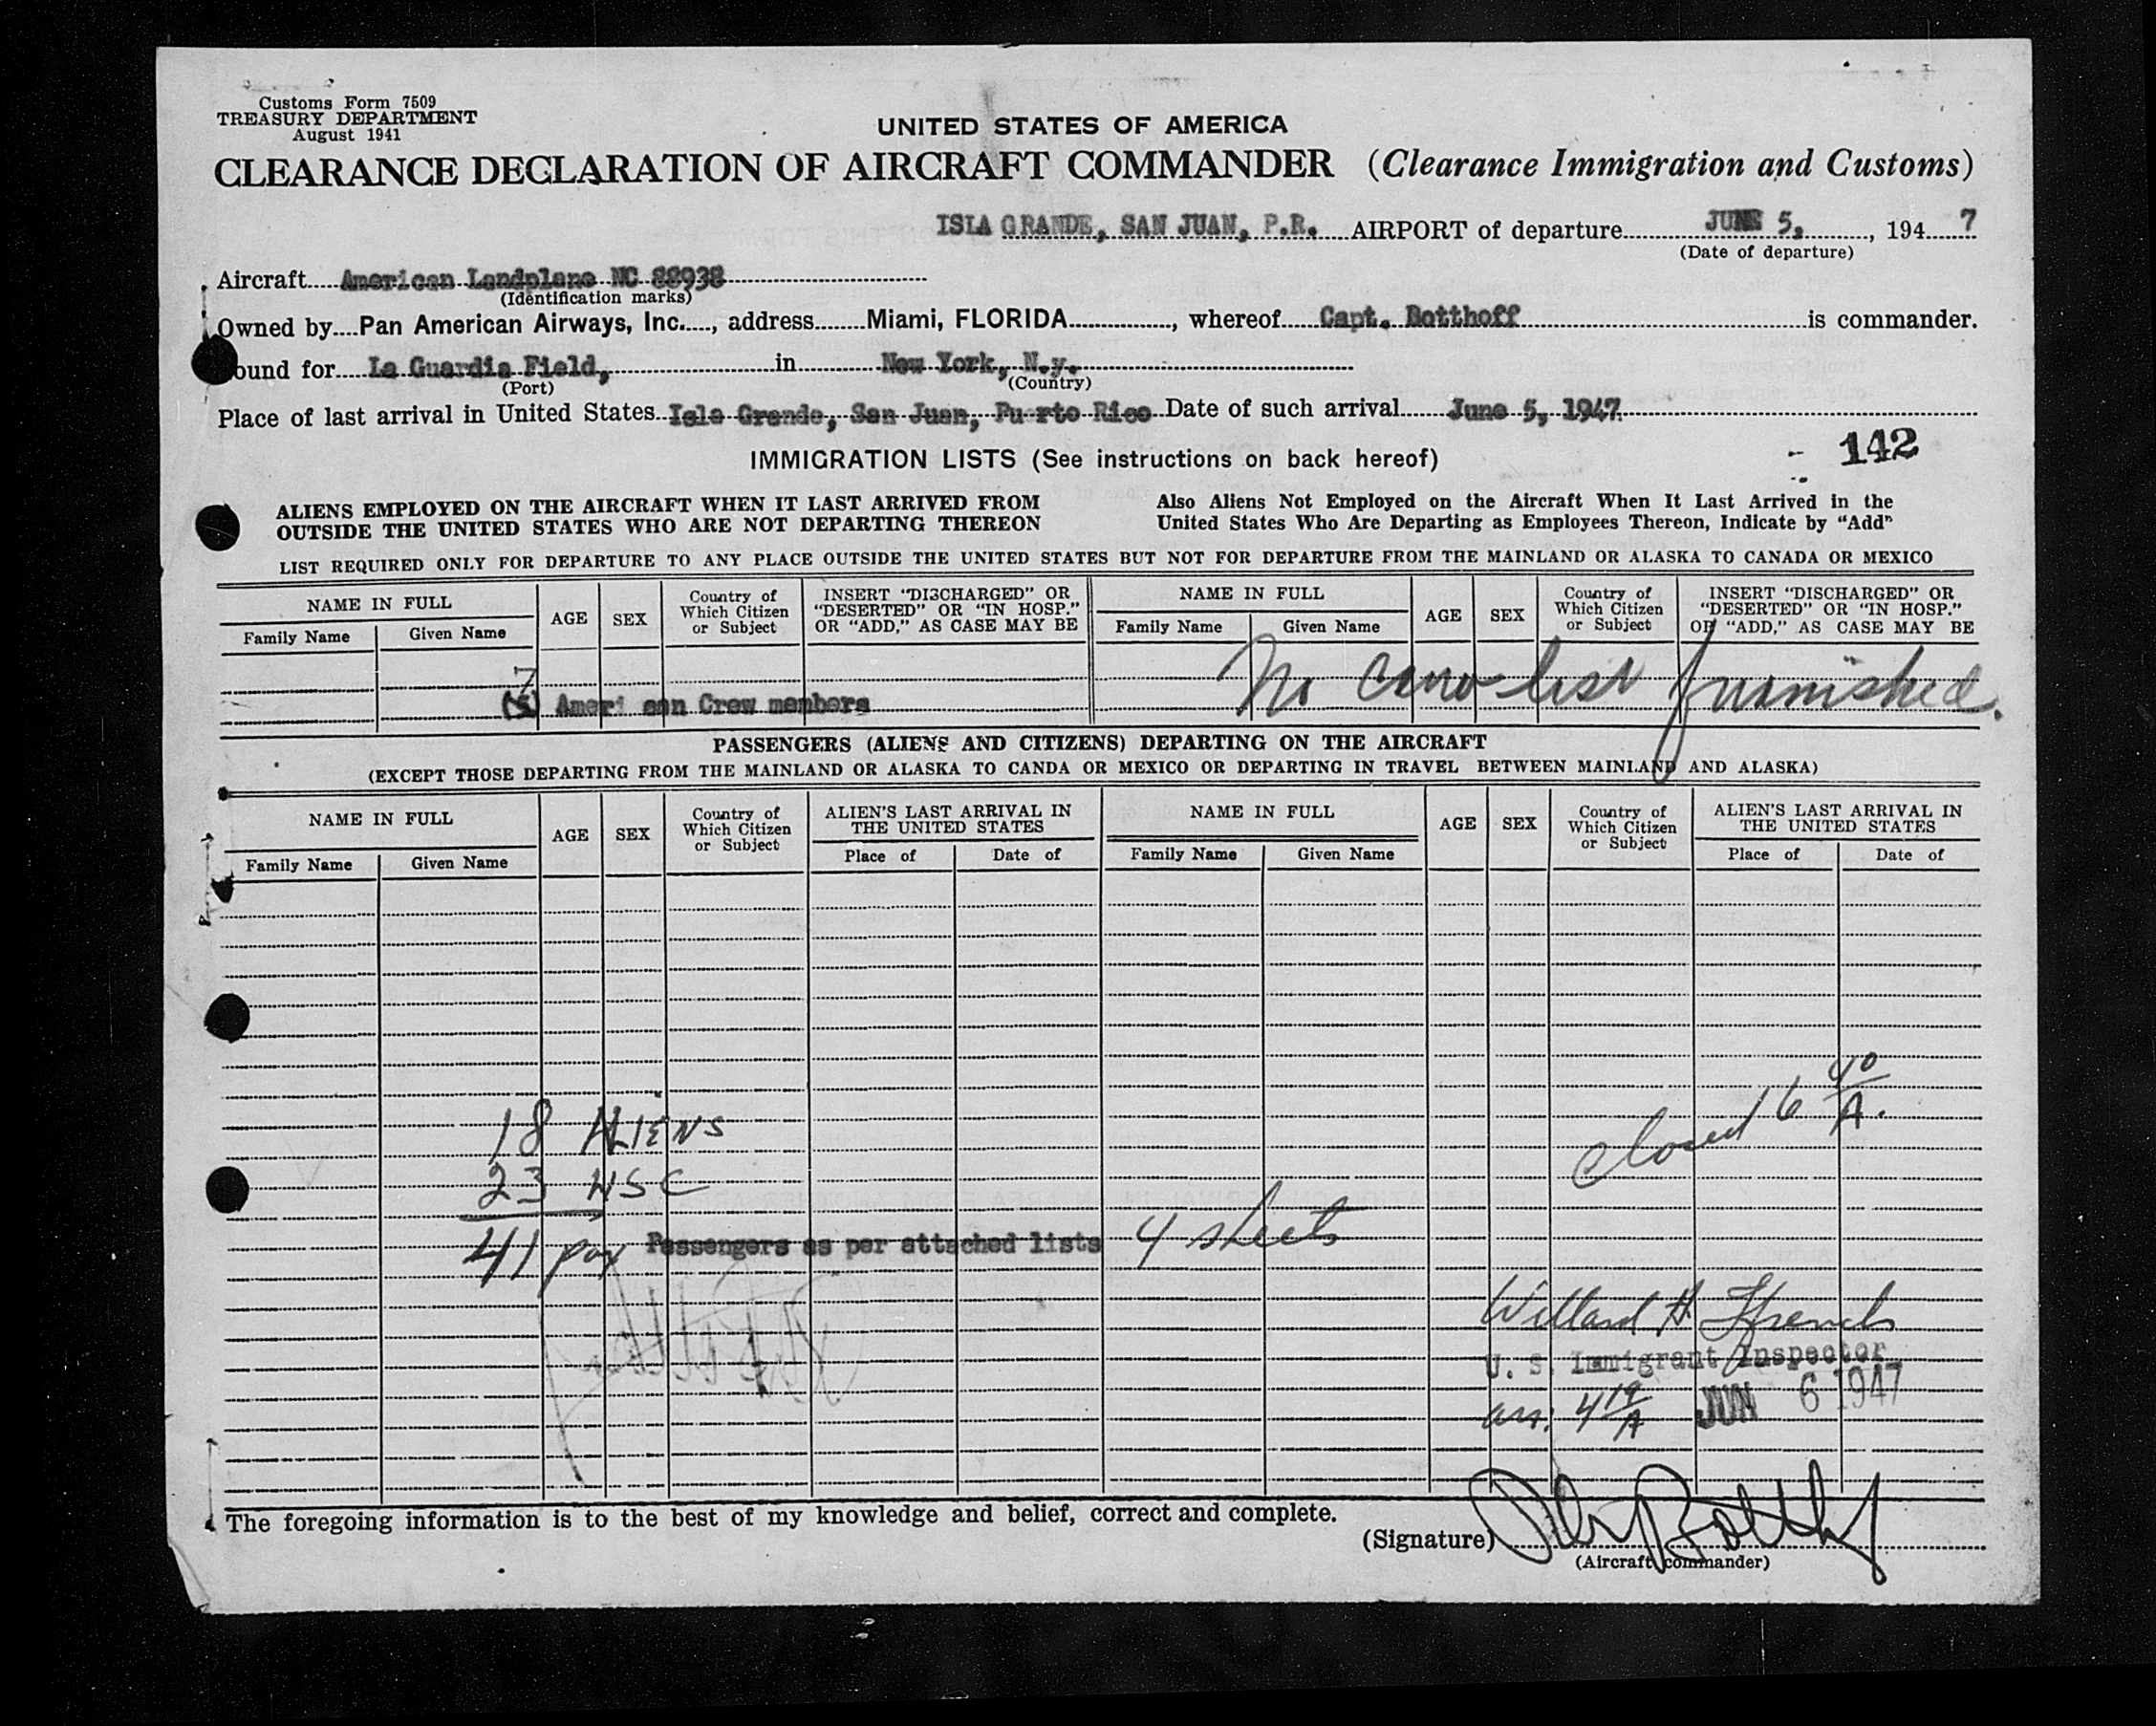 Customs Form 7509
TREASURY DEPARTMENT
August 1941
UNITED STATES OF AMERICA
CLEARANCE DECLARATION OF AIRCRAFT COMMANDER (Clearance Immigration and Customs)
ISLA GRANDE, SAN JUAN, P.R. AIRPORT of departure JUNE 5, , 194 7
(Date of departure)
Aircraft American Landplane NC 88938
(Identification marks)
Owned by Pan American Airways, Inc. , address Miami, FLORIDA , whereof Capt. Botthoff is commander.
ound for La Guardia Field, in New York, N.y.
(Port) (Country)
Place of last arrival in United States Isla Grande, San Juan, Puerto Rico Date of such arrival June 5, 1947
IMMIGRATION LISTS (See instructions on back hereof) - 142
ALIENS EMPLOYED ON THE AIRCRAFT WHEN IT LAST ARRIVED FROM
OUTSIDE THE UNITED STATES WHO ARE NOT DEPARTING THEREON
Also Aliens Not Employed on the Aircraft When It Last Arrived in the
United States Who Are Departing as Employees Thereon, Indicate by "Add"
LIST REQUIRED ONLY FOR DEPARTURE TO ANY PLACE OUTSIDE THE UNITED STATES BUT NOT FOR DEPARTURE FROM THE MAINLAND OR ALASKA TO CANADA OR MEXICO
NAME IN FULL
Family Name Given Name
AGE
SEX
Country of
Which Citizen
or Subject
INSERT "DISCHARGED" OR
"DESERTED" OR "IN HOSP."
OR "ADD," AS CASE MAY BE
NAME IN FULL
Family Name Given Name
AGE
SEX
Country of
Which Citizen
or Subject
INSERT "DISCHARGED" OR
"DESERTED" OR "IN HOSP."
OR "ADD," AS CASE MAY BE
7
American Crew members
No crew list furnished.
PASSENGERS (ALIENS AND CITIZENS) DEPARTING ON THE AIRCRAFT
(EXCEPT THOSE DEPARTING FROM THE MAINLAND OR ALASKA TO CANDA OR MEXICO OR DEPARTING IN TRAVEL BETWEEN MAINLAND AND ALASKA)
NAME IN FULL
Family Name Given Name
AGE
SEX
Country of
Which Citizen
or Subject
ALIEN'S LAST ARRIVAL IN
THE UNITED STATES
Place of Date of
NAME IN FULL
Family Name Given Name
AGE
SEX
Country of
Which Citizen
or Subject
ALIEN'S LAST ARRIVAL IN
THE UNITED STATES
Place of Date of
closed 6 40/A.
18 ALIENS
23 USC
41 pax Passengers as per attached lists 4 sheets
Willard H. French
U. S. Immigrant Inspector
arr. 4 19/A JUN 6 1947
The foregoing information is to the best of my knowledge and belief, correct and complete.
(Signature)
(Aircraft commander)